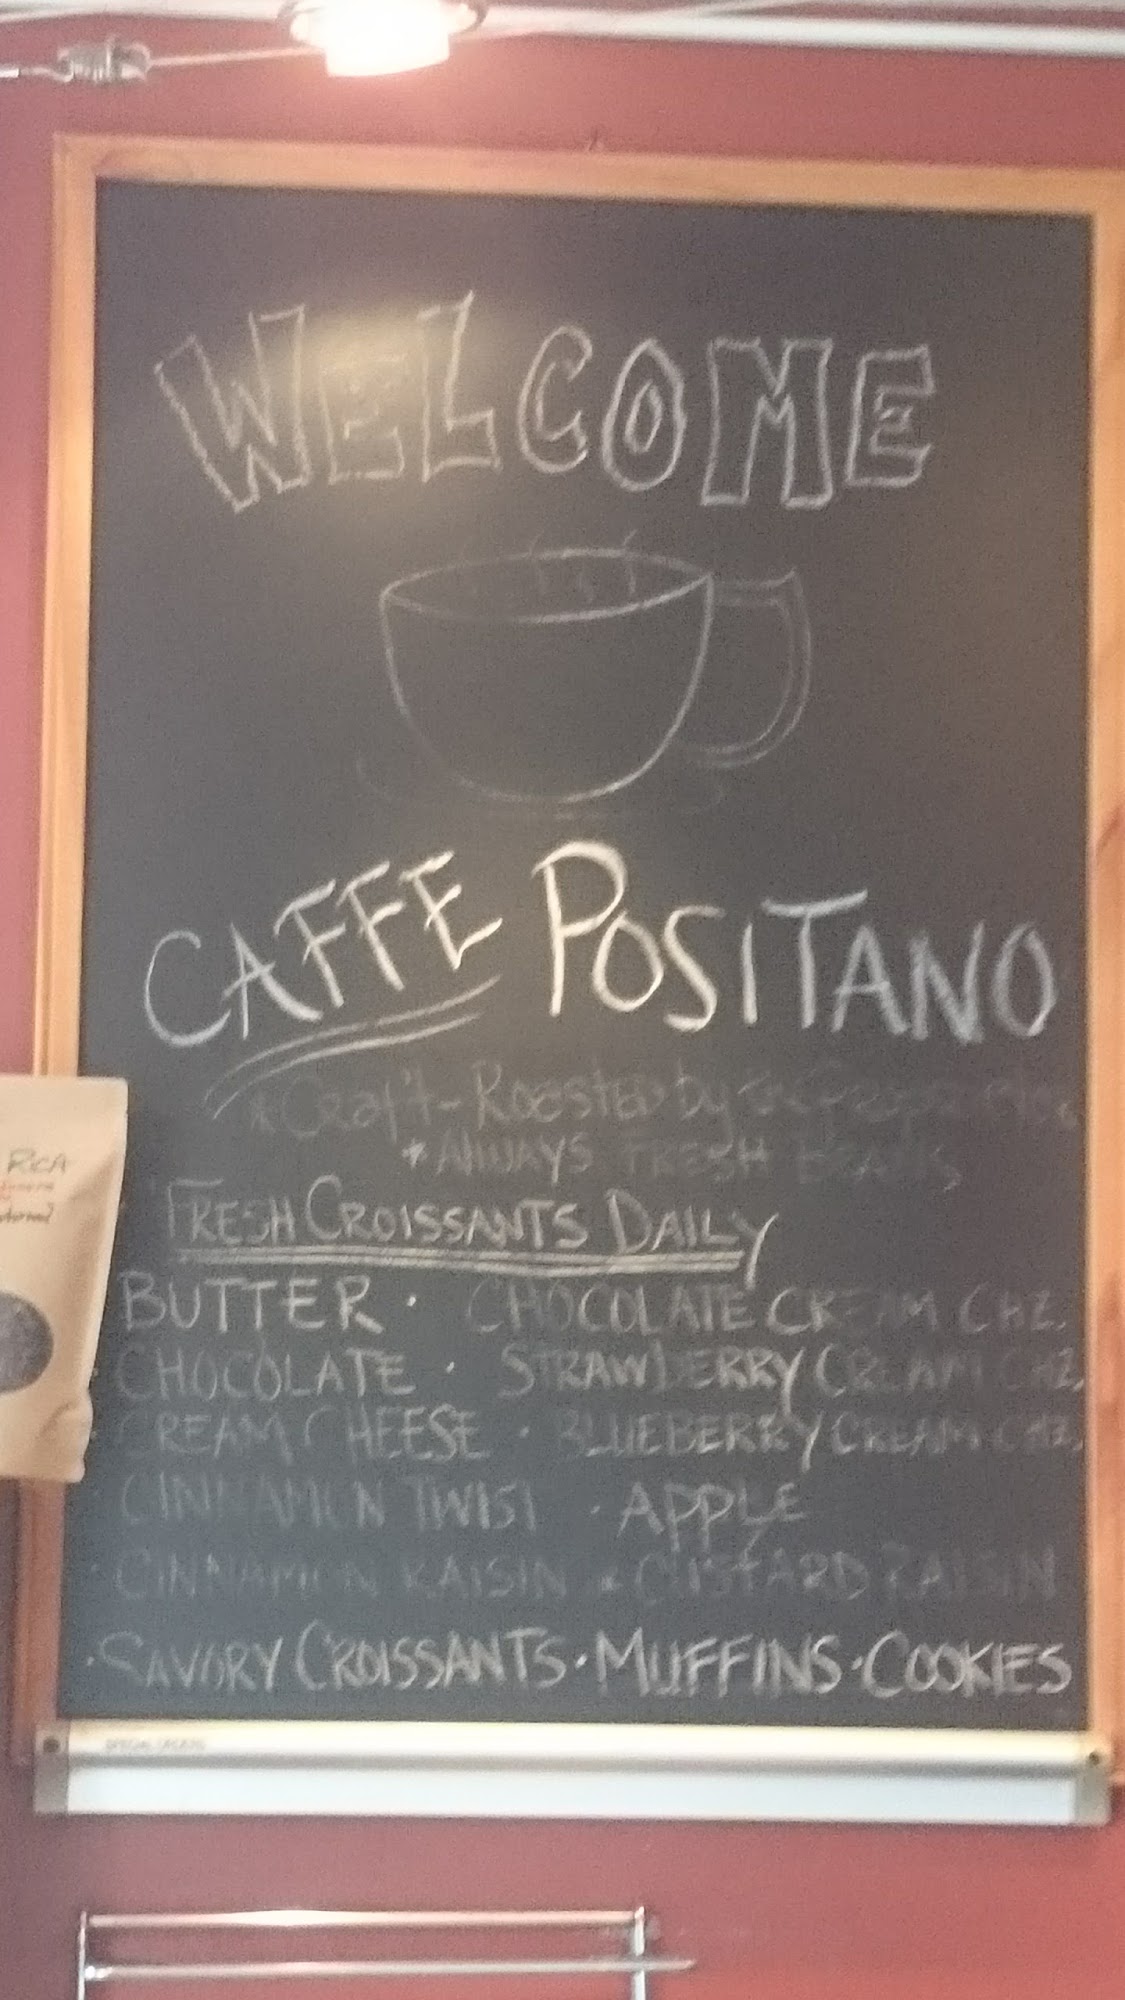 WELCOME
CAFFE POSITANO
*Craft-Roasted by
*ALWAYS FRESH BEANS
FRESH CROISSANTS DAILY
BUTTER · CHOCOLATE CREAM CHZ.
CHOCOLATE · STRAWBERRY CREAM CHZ.
CREAM CHEESE · BLUEBERRY CREAM CHZ.
CINNAMON TWIST · APPLE
· CINNAMON RAISIN · CUSTARD RAISIN
· SAVORY CROISSANTS · MUFFINS · COOKIES
RICA